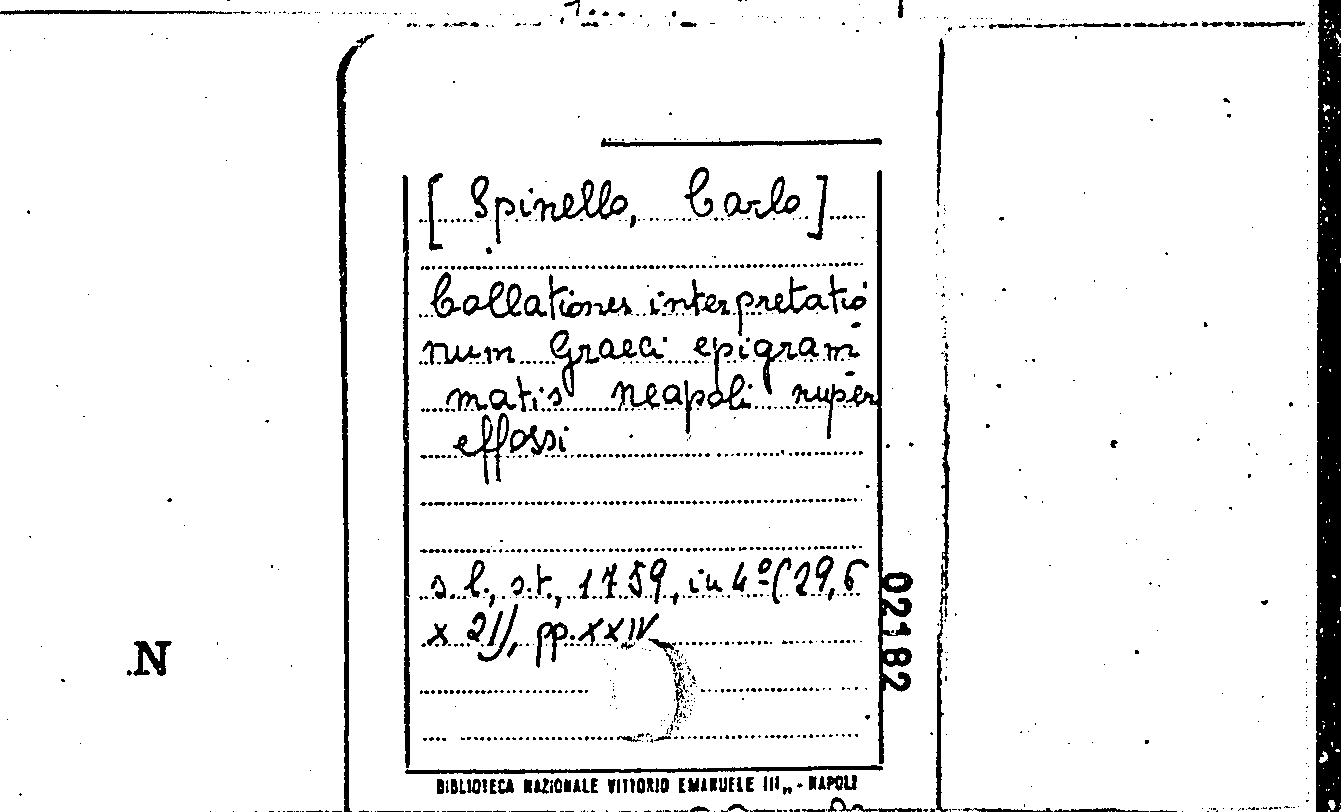 [ Spinello, Carlo ]
Collationes interpretatio
num Graeci epigram
matis neapoli nuper
effossi
s.l., s.t., 1759, in 4º (29,6
x 21), pp. XXIV
02182
N
BIBLIOTECA NAZIONALE VITTORIO EMANUELE III„ - NAPOLI